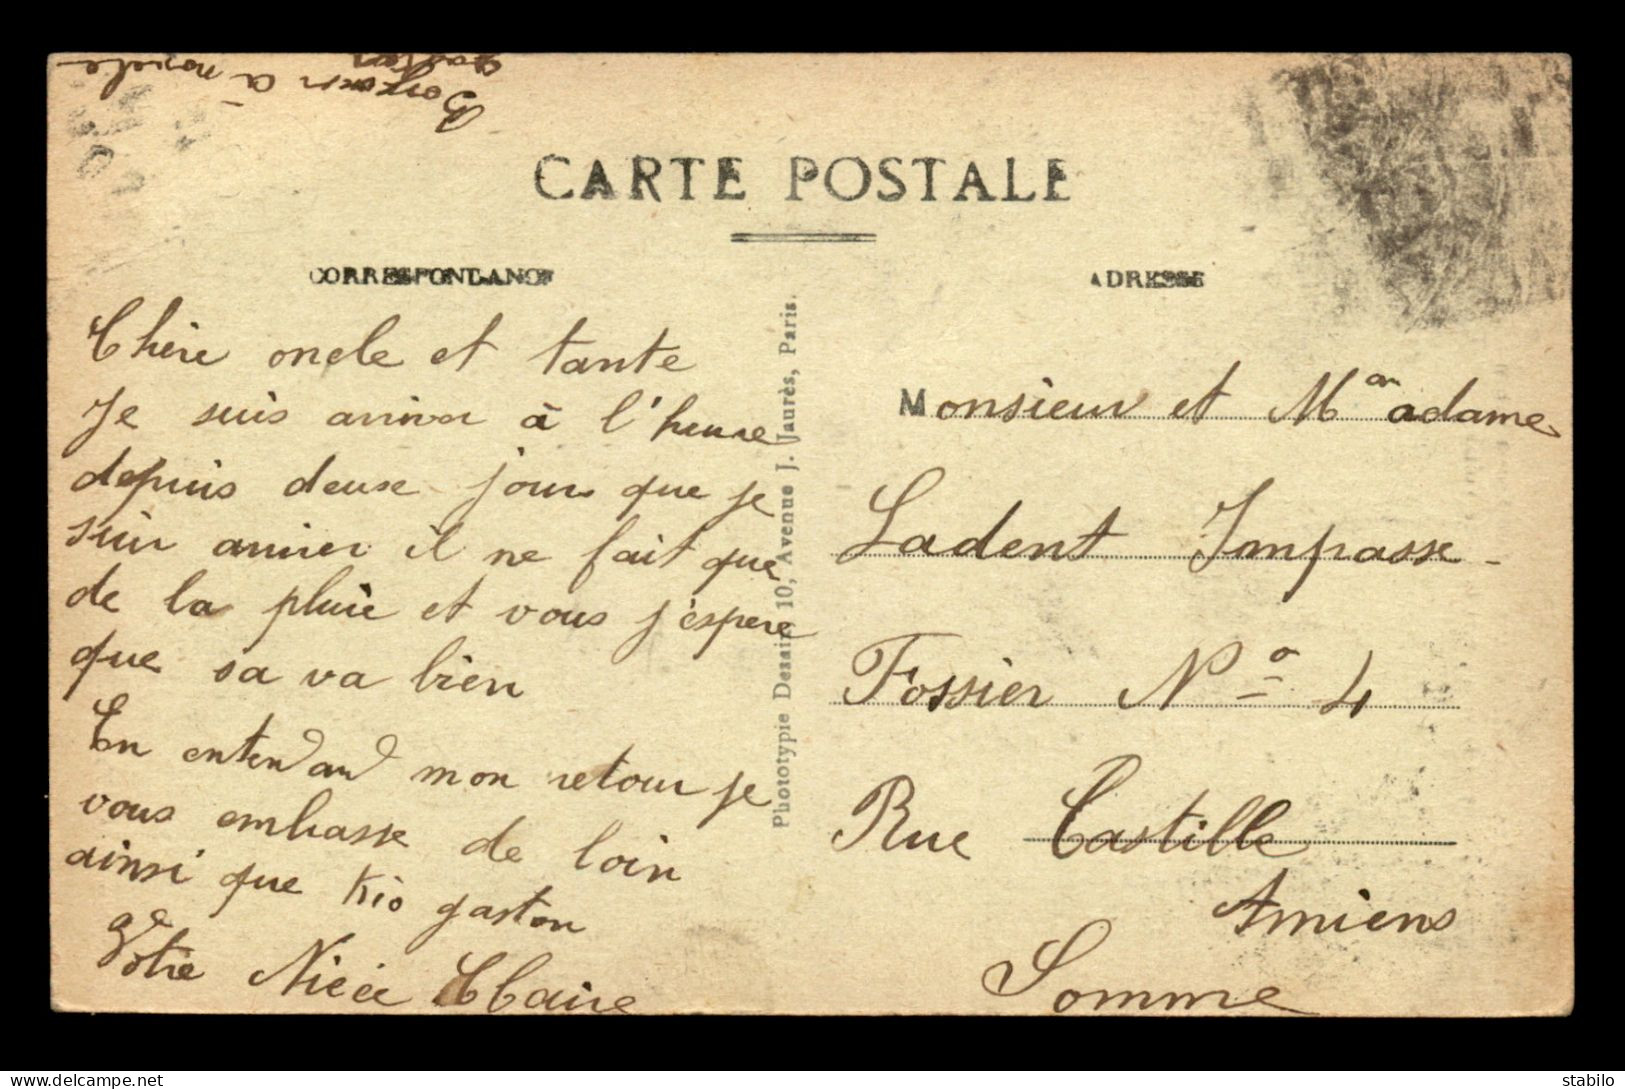 Bonjour à
gaston
CARTE POSTALE
CORRESPONDANCE
ADRESSE
Chère oncle et tante
Je suis arriver à l'heure
depuis deuse jours que je
suis arriver il ne fait que
de la pluie et vous j'espere
que sa va bien
En entendand mon retour je
vous embrasse de loin
ainsi que kio gaston
Votre Niéce Claire
Phototypie Desaix, 10, Avenue J. Jaurès, Paris.
Monsieur et Madame
Ladent Impasse
Fossier Nº 4
Rue Castille
Amiens
Somme
delcampe.net
stabilo